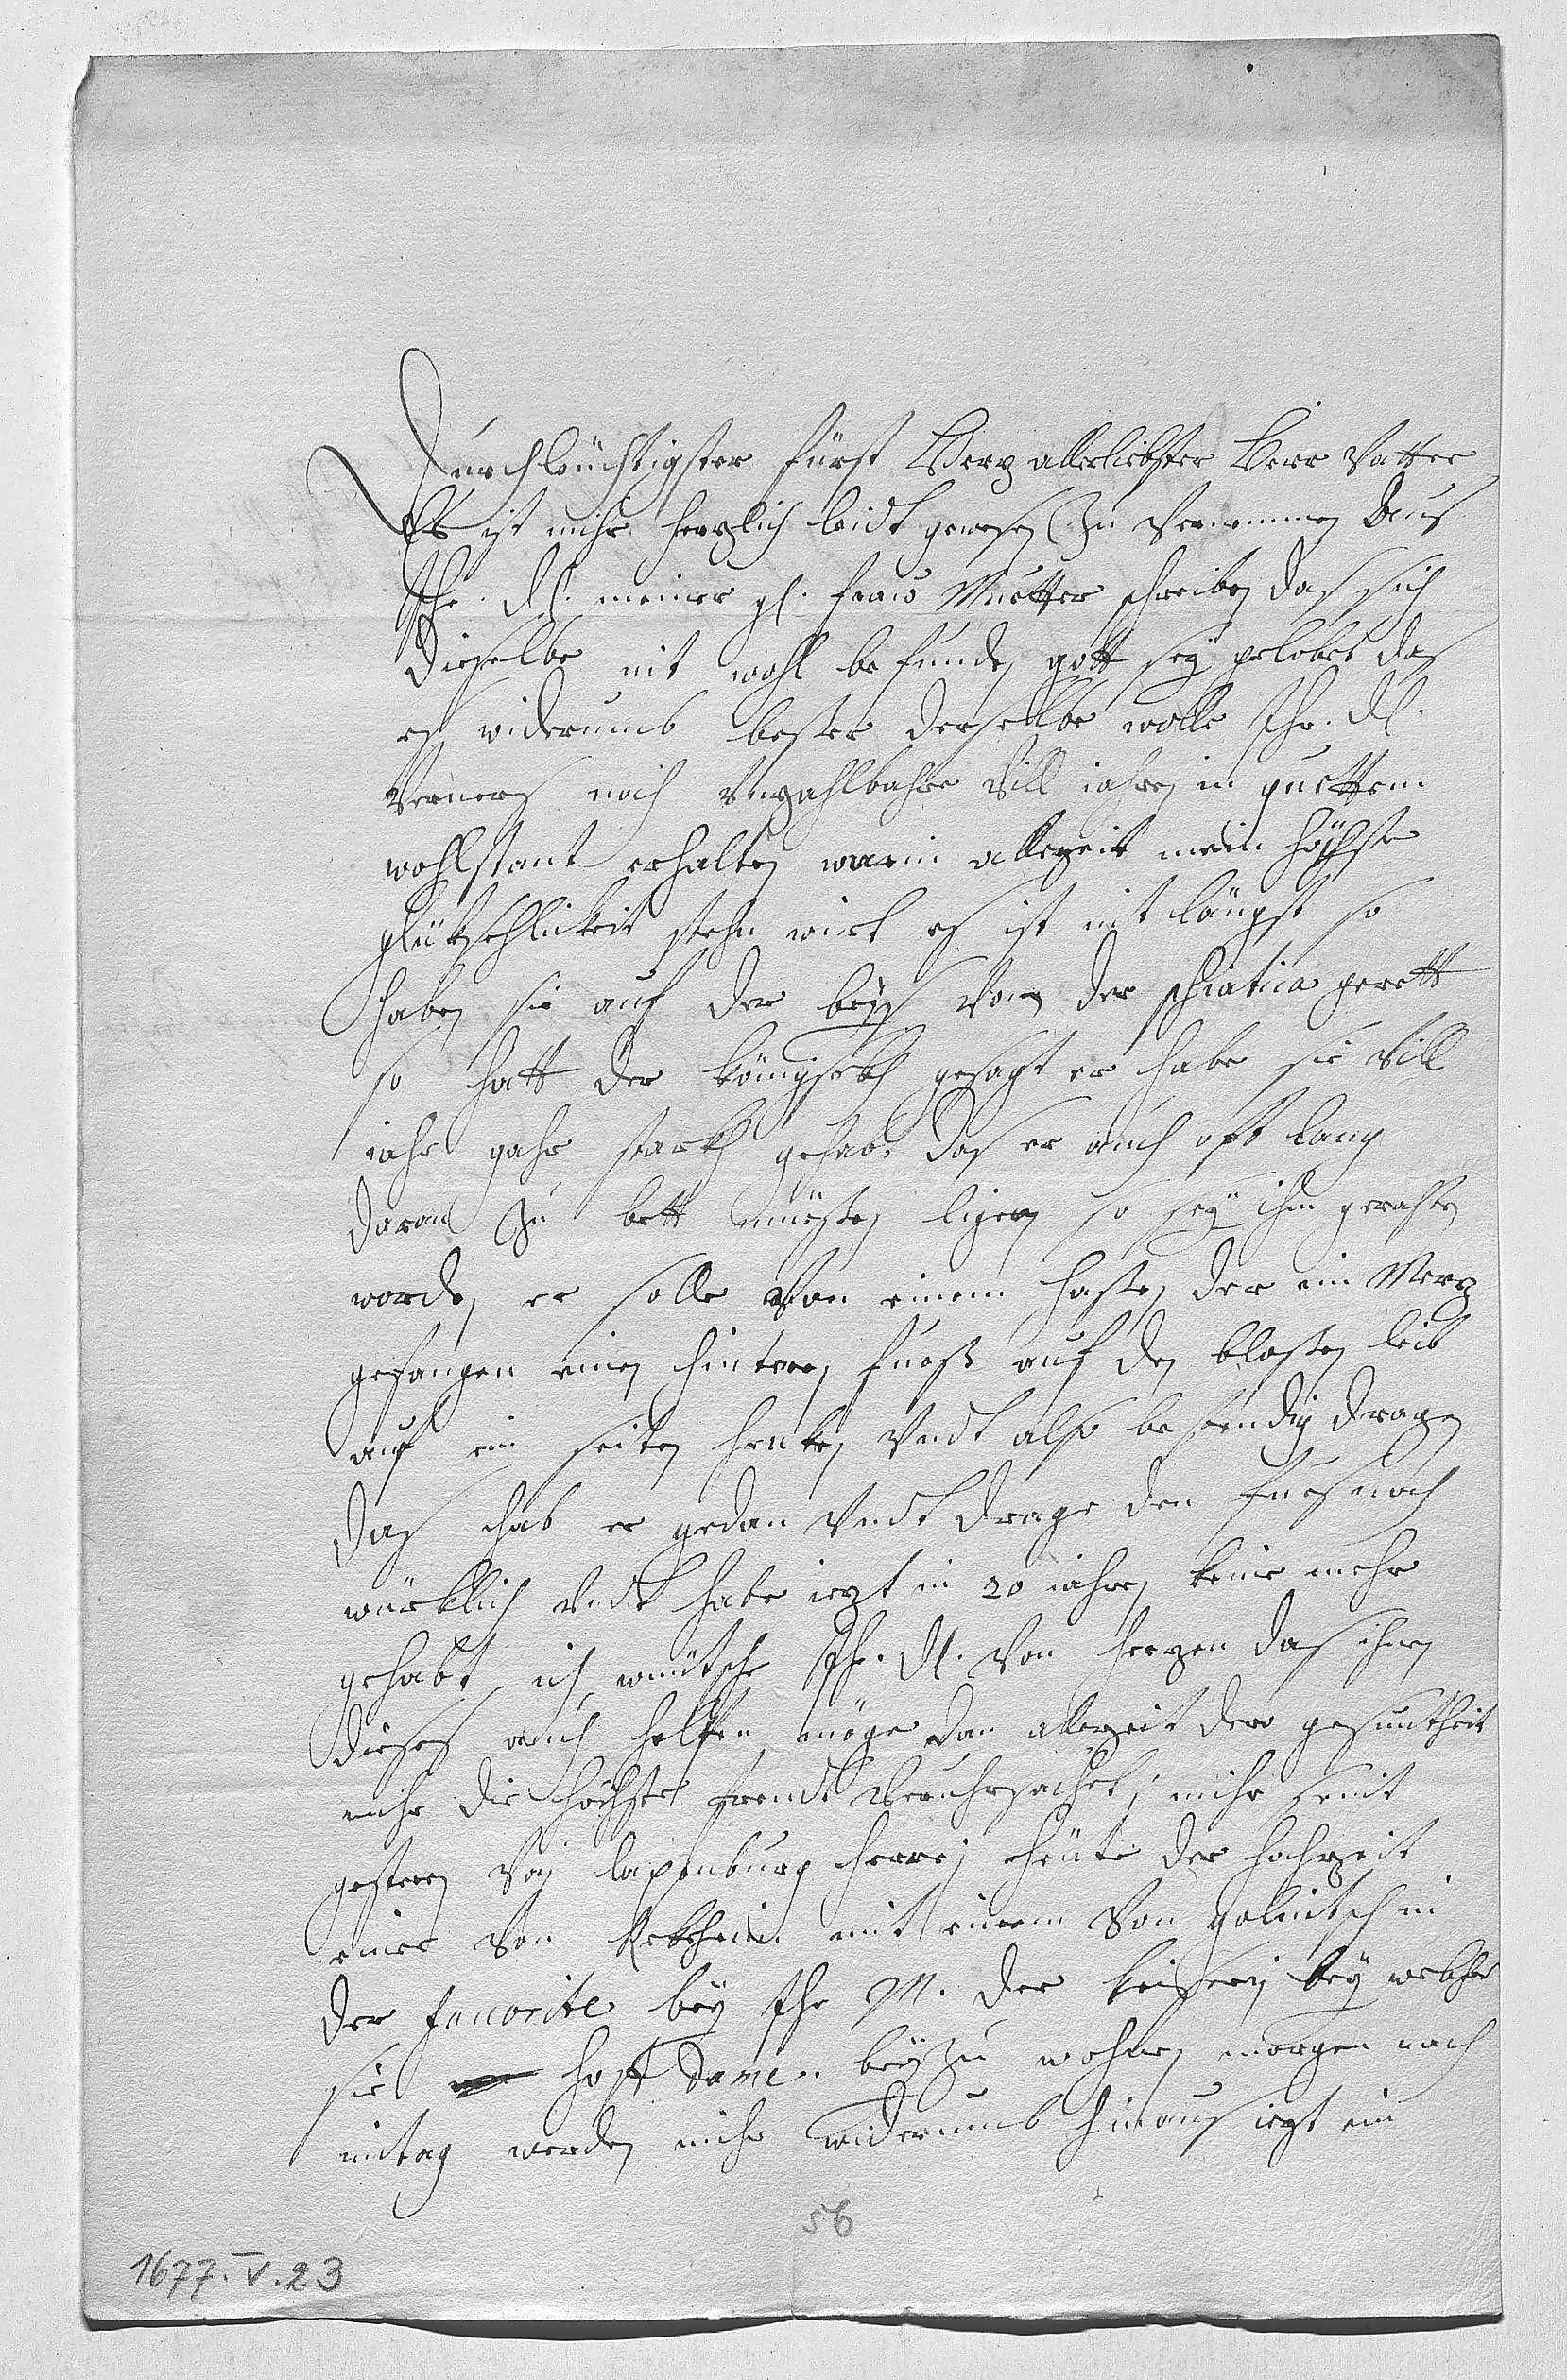 Durchleüchtigster fürst Herz allerliebster Herr Vatter
Es ist mihr herzlich leidt gewesen zu vernemmen aus
Ihr. Dl. meiner gl. fraw Muetter schreiben das sich
dieselbe nit wohl befunden gott sey gelobet das
es widerumb besser derselbe wolle Ihr. Dl.
verners noch unzahlbahre vill iahren in guettem
wohlstant erhalten warin allezeit mein höchste
glükhsehlickeit stehn wirt es ist nit längst so
haben sie auf der beiss von der schiatica gerett
so hatt der königsekh gesagt er habe sie vill
iahr gahr starkh gehabt das er auch oft lang
daran zu bett müessen ligen so sey ihm gerahten
worden er solle von einem hassen der im Merz
gefangen einen hinteren fuess auf den blossen leib
auf ein seiten henken undt also bestendig dragen
das hab er gedan undt drage den fues noch
würcklich undt habe iezt in 20 iahren keine mehr
gehabt ich wüntsche Ihr. Dl. von herzen das ihnen
dieses auch helffen möge dan allezeit dero gesuntheit
mihr die höchste freudt veruhrsachet, mihr seint
gesteren von laxenburg herein heüte der hochzeit
einer von Rekheim mit einem von golnitsch in
der favorite bey Ihr M. der keisserin bey welcher
sie hoff Dame. beyzu wohnen morgen nach
mitag werden mihr widerumb hinaus iezt im
56
1677.V.23